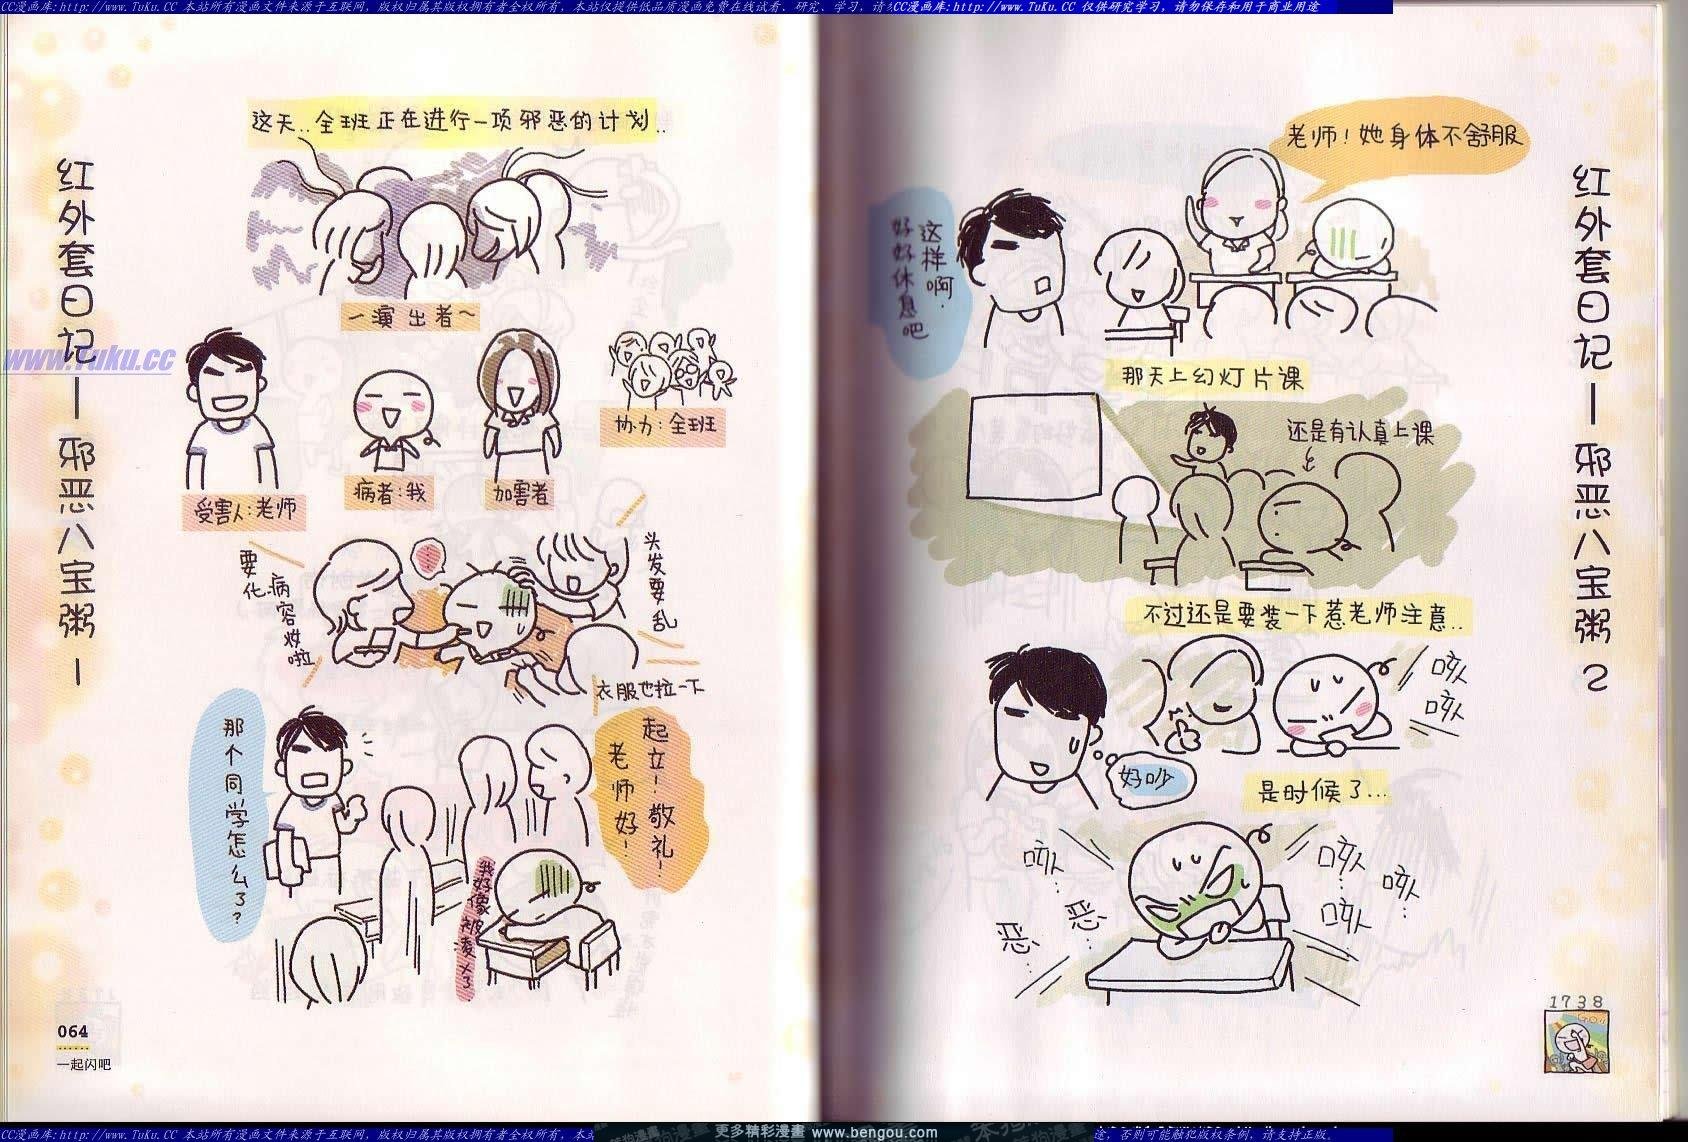 CC漫画库:http://www.TuKu.CC 本站所有漫画文件来源于互联网，版权归属其版权拥有者全权所有，本站仅提供低品质漫画免费在线试看、研究、学习，请勿
CC漫画库:http://www.TuKu.CC 仅供研究学习，请勿保存和用于商业用途
红外套日记—邪恶八宝粥1
www.Tuku.cc
这天..全班正在进行一项邪恶的计划..
—演出者~
受害人:老师
病者:我
加害者
协力:全班
要化
病容妆啦
头发要乱
衣服也拉一下
那个同学怎么了?
起立!敬礼!
老师好!
我好像被凌ㄨ了
064
一起闪吧
红外套日记—邪恶八宝粥2
老师!她身体不舒服
这样啊.
好好休息吧
那天上幻灯片课
还是有认真上课
不过还是要装一下惹老师注意..
咳
咳
好吵
是时候了...
咳..
咳..
咳..
咳
恶..
恶..
1738
CC漫画库:http://www.TuKu.CC 本站所有漫画文件来源于互联网，版权归属其版权拥有者全权所有，本
更多精彩漫畫 www.bengou.com
途，否则可能触犯版权条例，请支持正版。